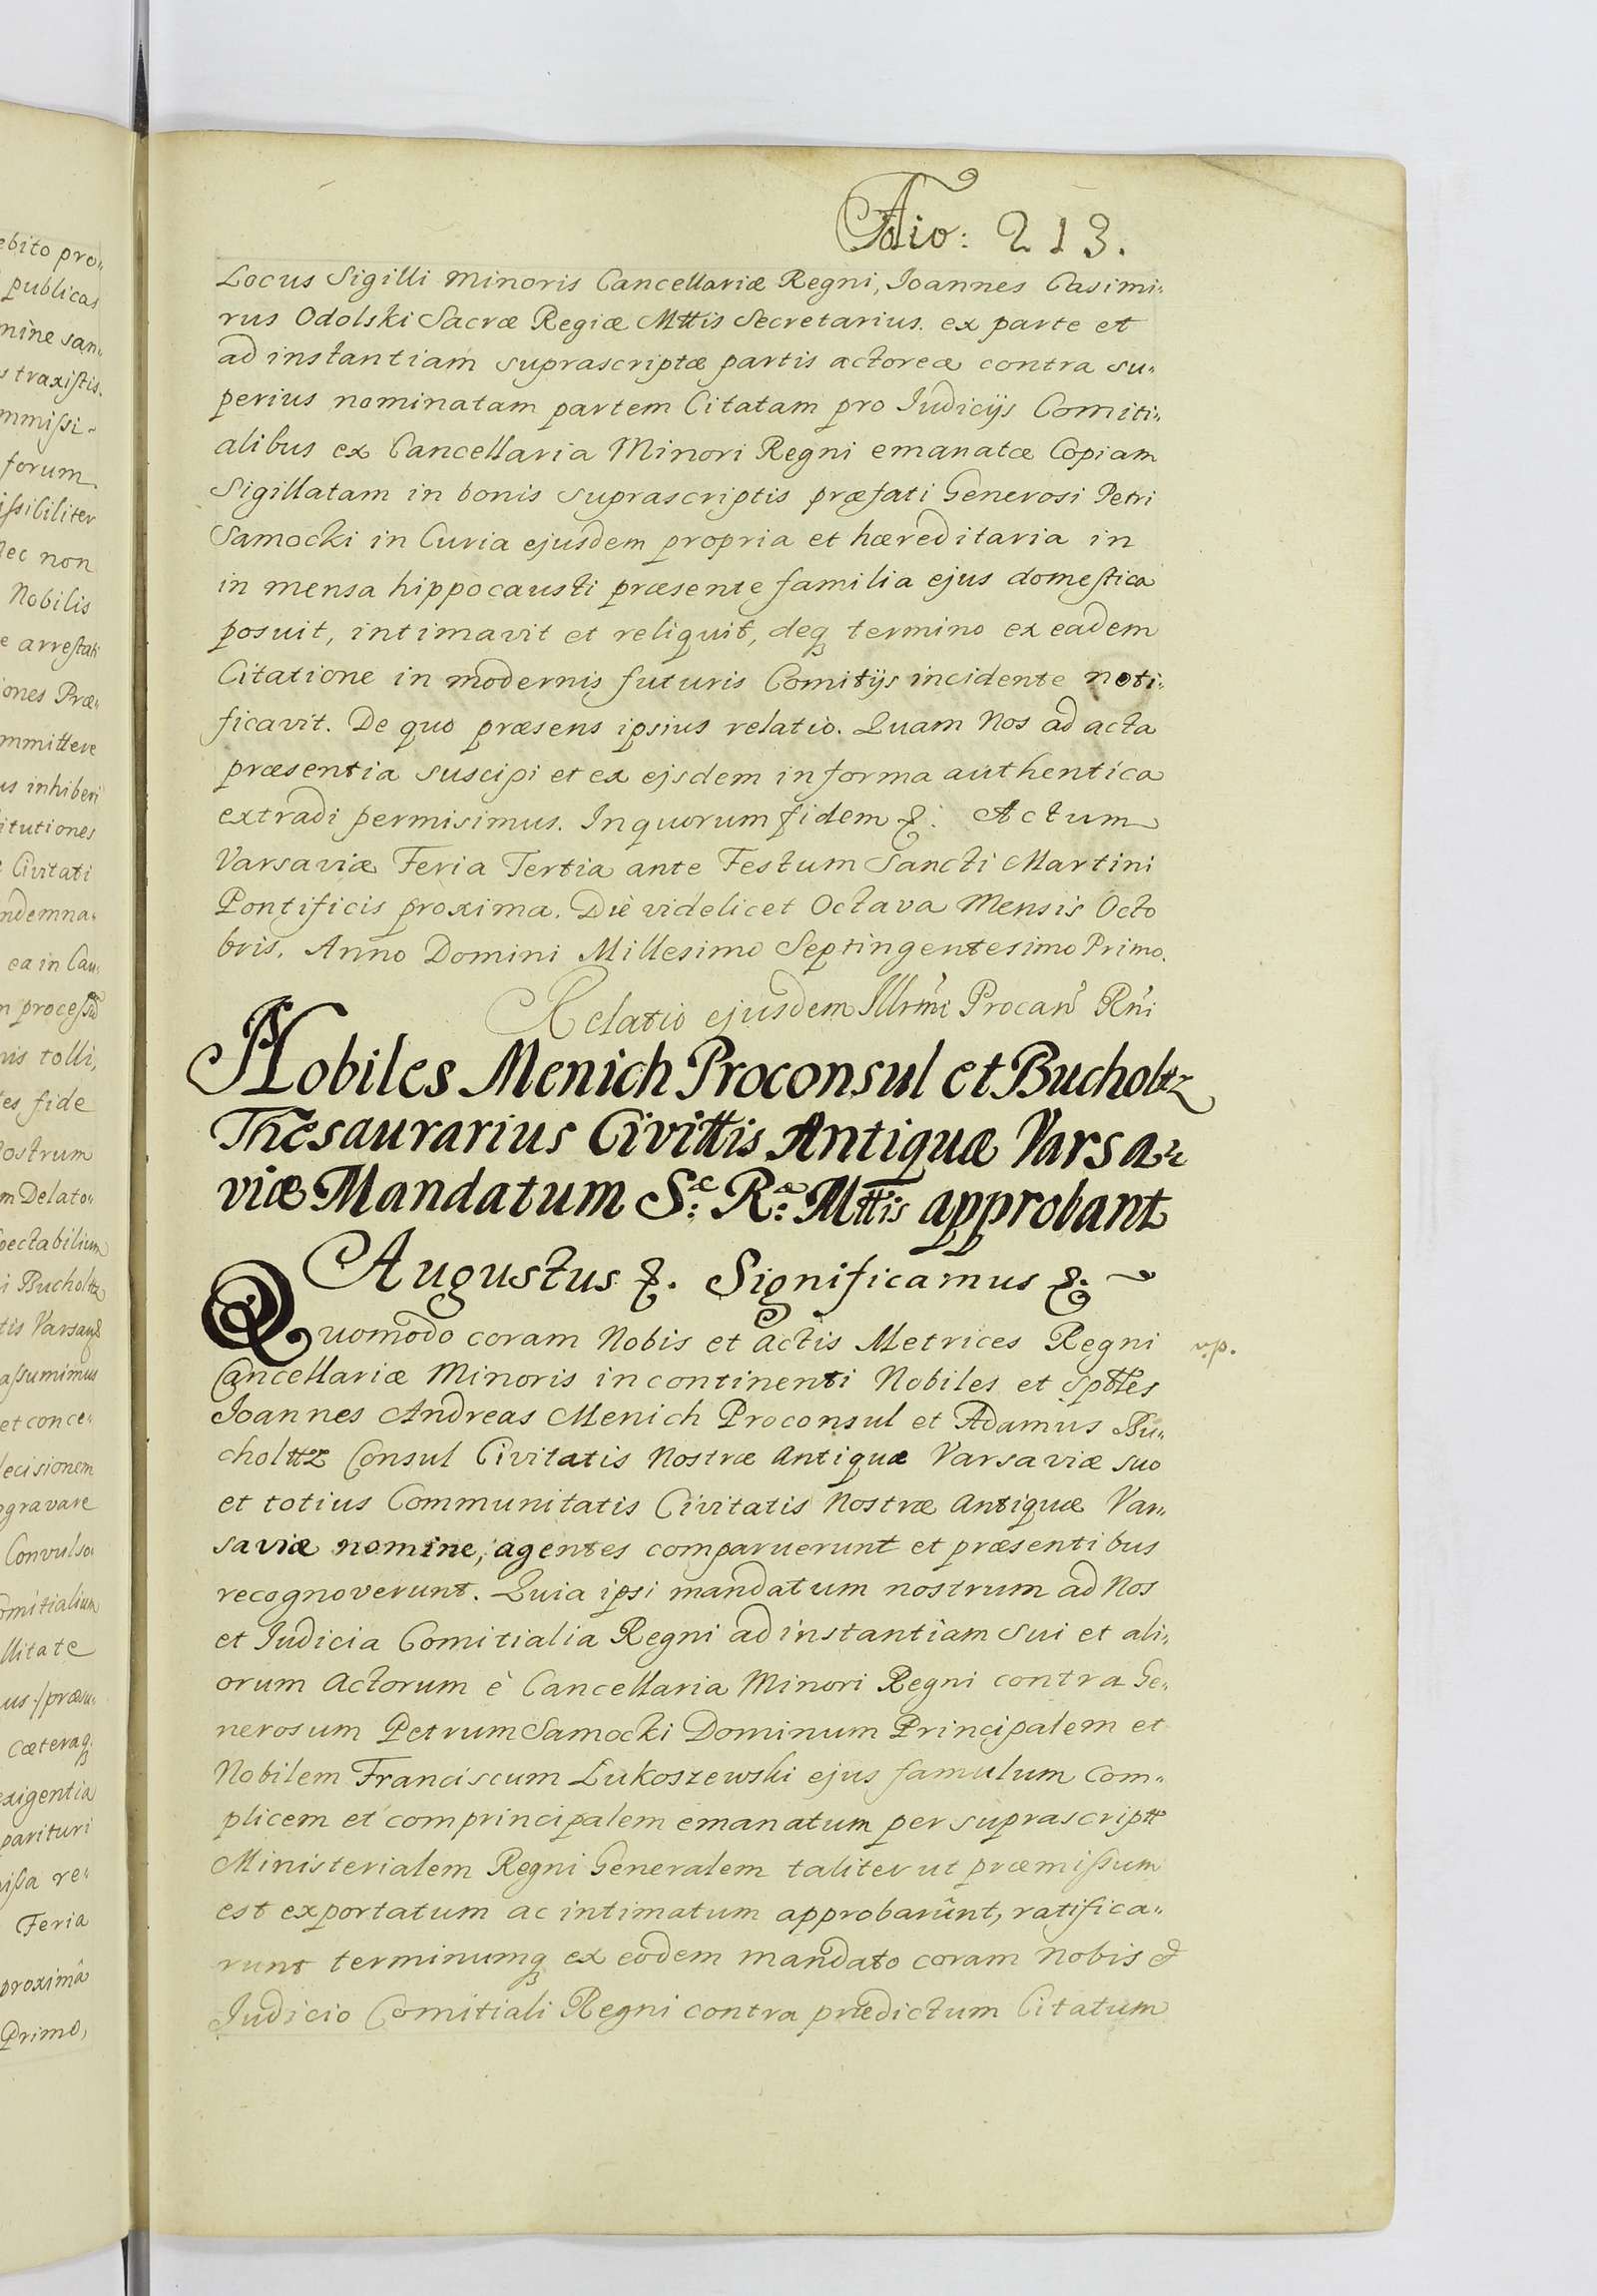 Folio: 213.
Locus Sigilli Minoris Cancellariæ Regni, Ioannes Casimi„
rus Odolski Sacræ Regiæ Mttis Secretarius. ex parte et
ad instantiam suprascriptæ partis actoreæ contra su„
perius nominatam partem Citatam pro Iudicijs Comiti„
alibus ex Cancellaria Minori Regni emanatæ Copiam
Sigillatam in bonis suprascriptis præfati Generosi Petri
Samocki in Curia ejusdem propria et hæreditaria in
in mensa hippocausti præsente familia ejus domestica
posuit, intimavit et reliquit, deq3 termino ex eadem
Citatione in modernis futuris Comitijs incidente noti„
ficavit. De quo præsens ipsius relatio. Quam Nos ad acta
præsentia suscipi et ex ejsdem in forma authentica
extradi permisimus. In quorum fidem &: Actum
Varsaviæ Feria Tertia ante Festum Sancti Martini
Pontificis proxima. Die videlicet Octava Mensis Octo
bris. Anno Domini Millesimo Septingentesimo Primo.
Relatio ejusdem Illrm̃i Procañ Rñi
Nobiles Menich Proconsul et Bucholtz
Thesaurarius Civittis Antiquæ Varsa„
viæ Mandatum S:æ R:æ Mttis approbant
Augustus &. Significamus &.
Quomodo coram Nobis et actis Metrices Regni
v.p.
Cancellariæ Minoris in continenti Nobiles et Spttles
Ioannes Andreas Menich Proconsul et Adamus Bu„
choltz Consul Civitatis Nostræ Antiquæ Varsaviæ suo
et totius Communitatis Civitatis Nostræ Antiquæ Var„
saviæ nomine, agentes comparuerunt et præsentibus
recognoverunt. Quia ipsi mandatum nostrum ad Nos
et Iudicia Comitialia Regni ad instantiam Sui et ali„
orum Actorum è Cancellaria Minori Regni contra Ge„
nerosum Petrum Samocki Dominum Principalem et
Nobilem Franciscum Lukoszewski ejus famulum Com„
plicem et comprincipalem emanatum per suprascriptt
Ministerialem Regni Generalem taliter ut præmissum
est exportatum ac intimatum approbarûnt, ratifica„
runt terminumq3 ex eodem mandato coram Nobis &
Iudicio Comitiali Regni contra prædictum Citatum
ebito pro„
publicas
mine san„
s traxistis.
mmissi„
forum.
issibiliter
nec non
Nobilis
e arrestati
iones Præ„
mmittere
us inhiberi
itutiones
Civitati
ndemna„
ea in Cau„
tolli,
es fide
ostrum
m Delato„
pectabilium
i Bucholtz
assumimus
et conce„
decisionem
gravare
Convulso„
omitialium
llitate
cæteraq3
exigentia
parituri
issa re„
Feria
proximâ
Primo,